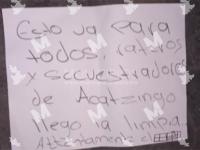 Esto va para
todos, rateros
y sccuestradores
de Acatzingo
llego la limpia.
Atentamente el